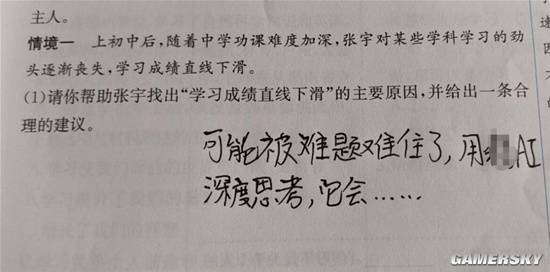 主人。
情境一 上初中后,随着中学功课难度加深,张宇对某些学科学习的劲
头逐渐丧失,学习成绩直线下滑。
(1)请你帮助张宇找出“学习成绩直线下滑”的主要原因,并给出一条合
理的建议。
可能被难题难住了,用 AI
深度思考,它会……
GAMERSKY